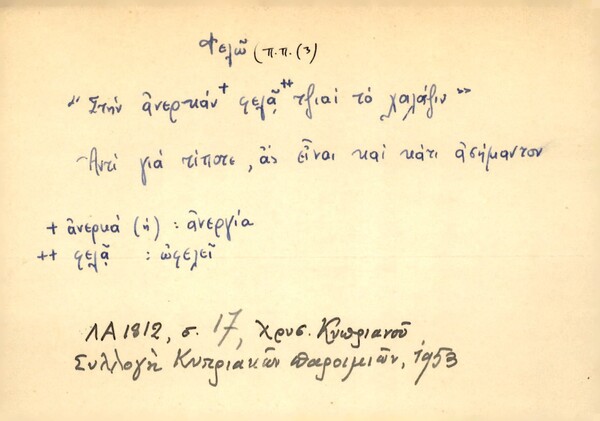 Φελῶ (π.π. (3)
"Στὴν ἀνερκάν+ φελᾷ++ τζιαὶ τὸ χαλάζιν"
Ἀντὶ γιὰ τίποτε, ἂς εἶναι καὶ κάτι ἀσήμαντον
+ ἀνερκά (ἡ) : ἀνεργία
++ φελᾷ : ὠφελεῖ
ΛΑ 1812, σ. 17, Χρυσ. Κυπριανοῦ
Συλλογὴ Κυπριακῶν παροιμιῶν, 1953